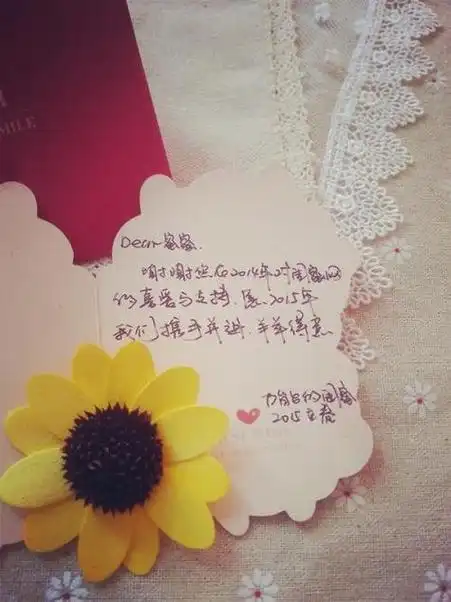 MILE
Dear 蜜蜜.
谢谢您在2014年对闺蜜网
的喜爱与支持.愿2015年
我们携手并进.羊羊得意
的闺蜜
2015立春